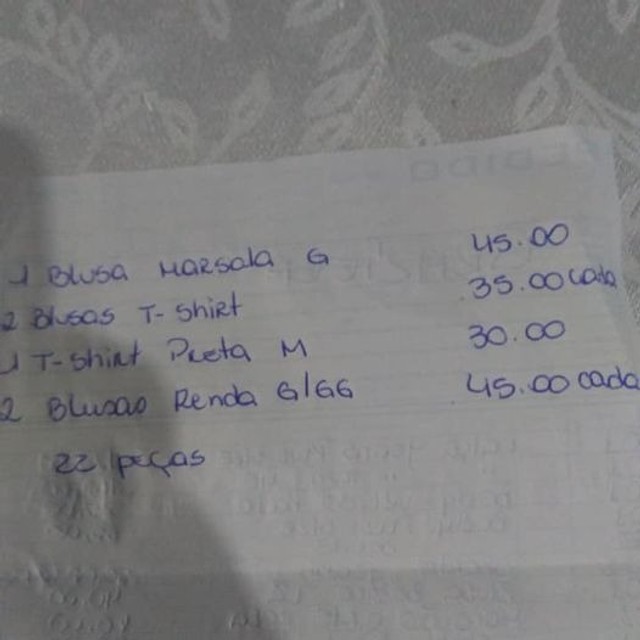 1 Blusa Marsala G 45.00
2 Blusas T-Shirt 35.00 cada
1 T-Shirt Preta M 30.00
2 Blusas Renda G/GG 45.00 cada
22 peças